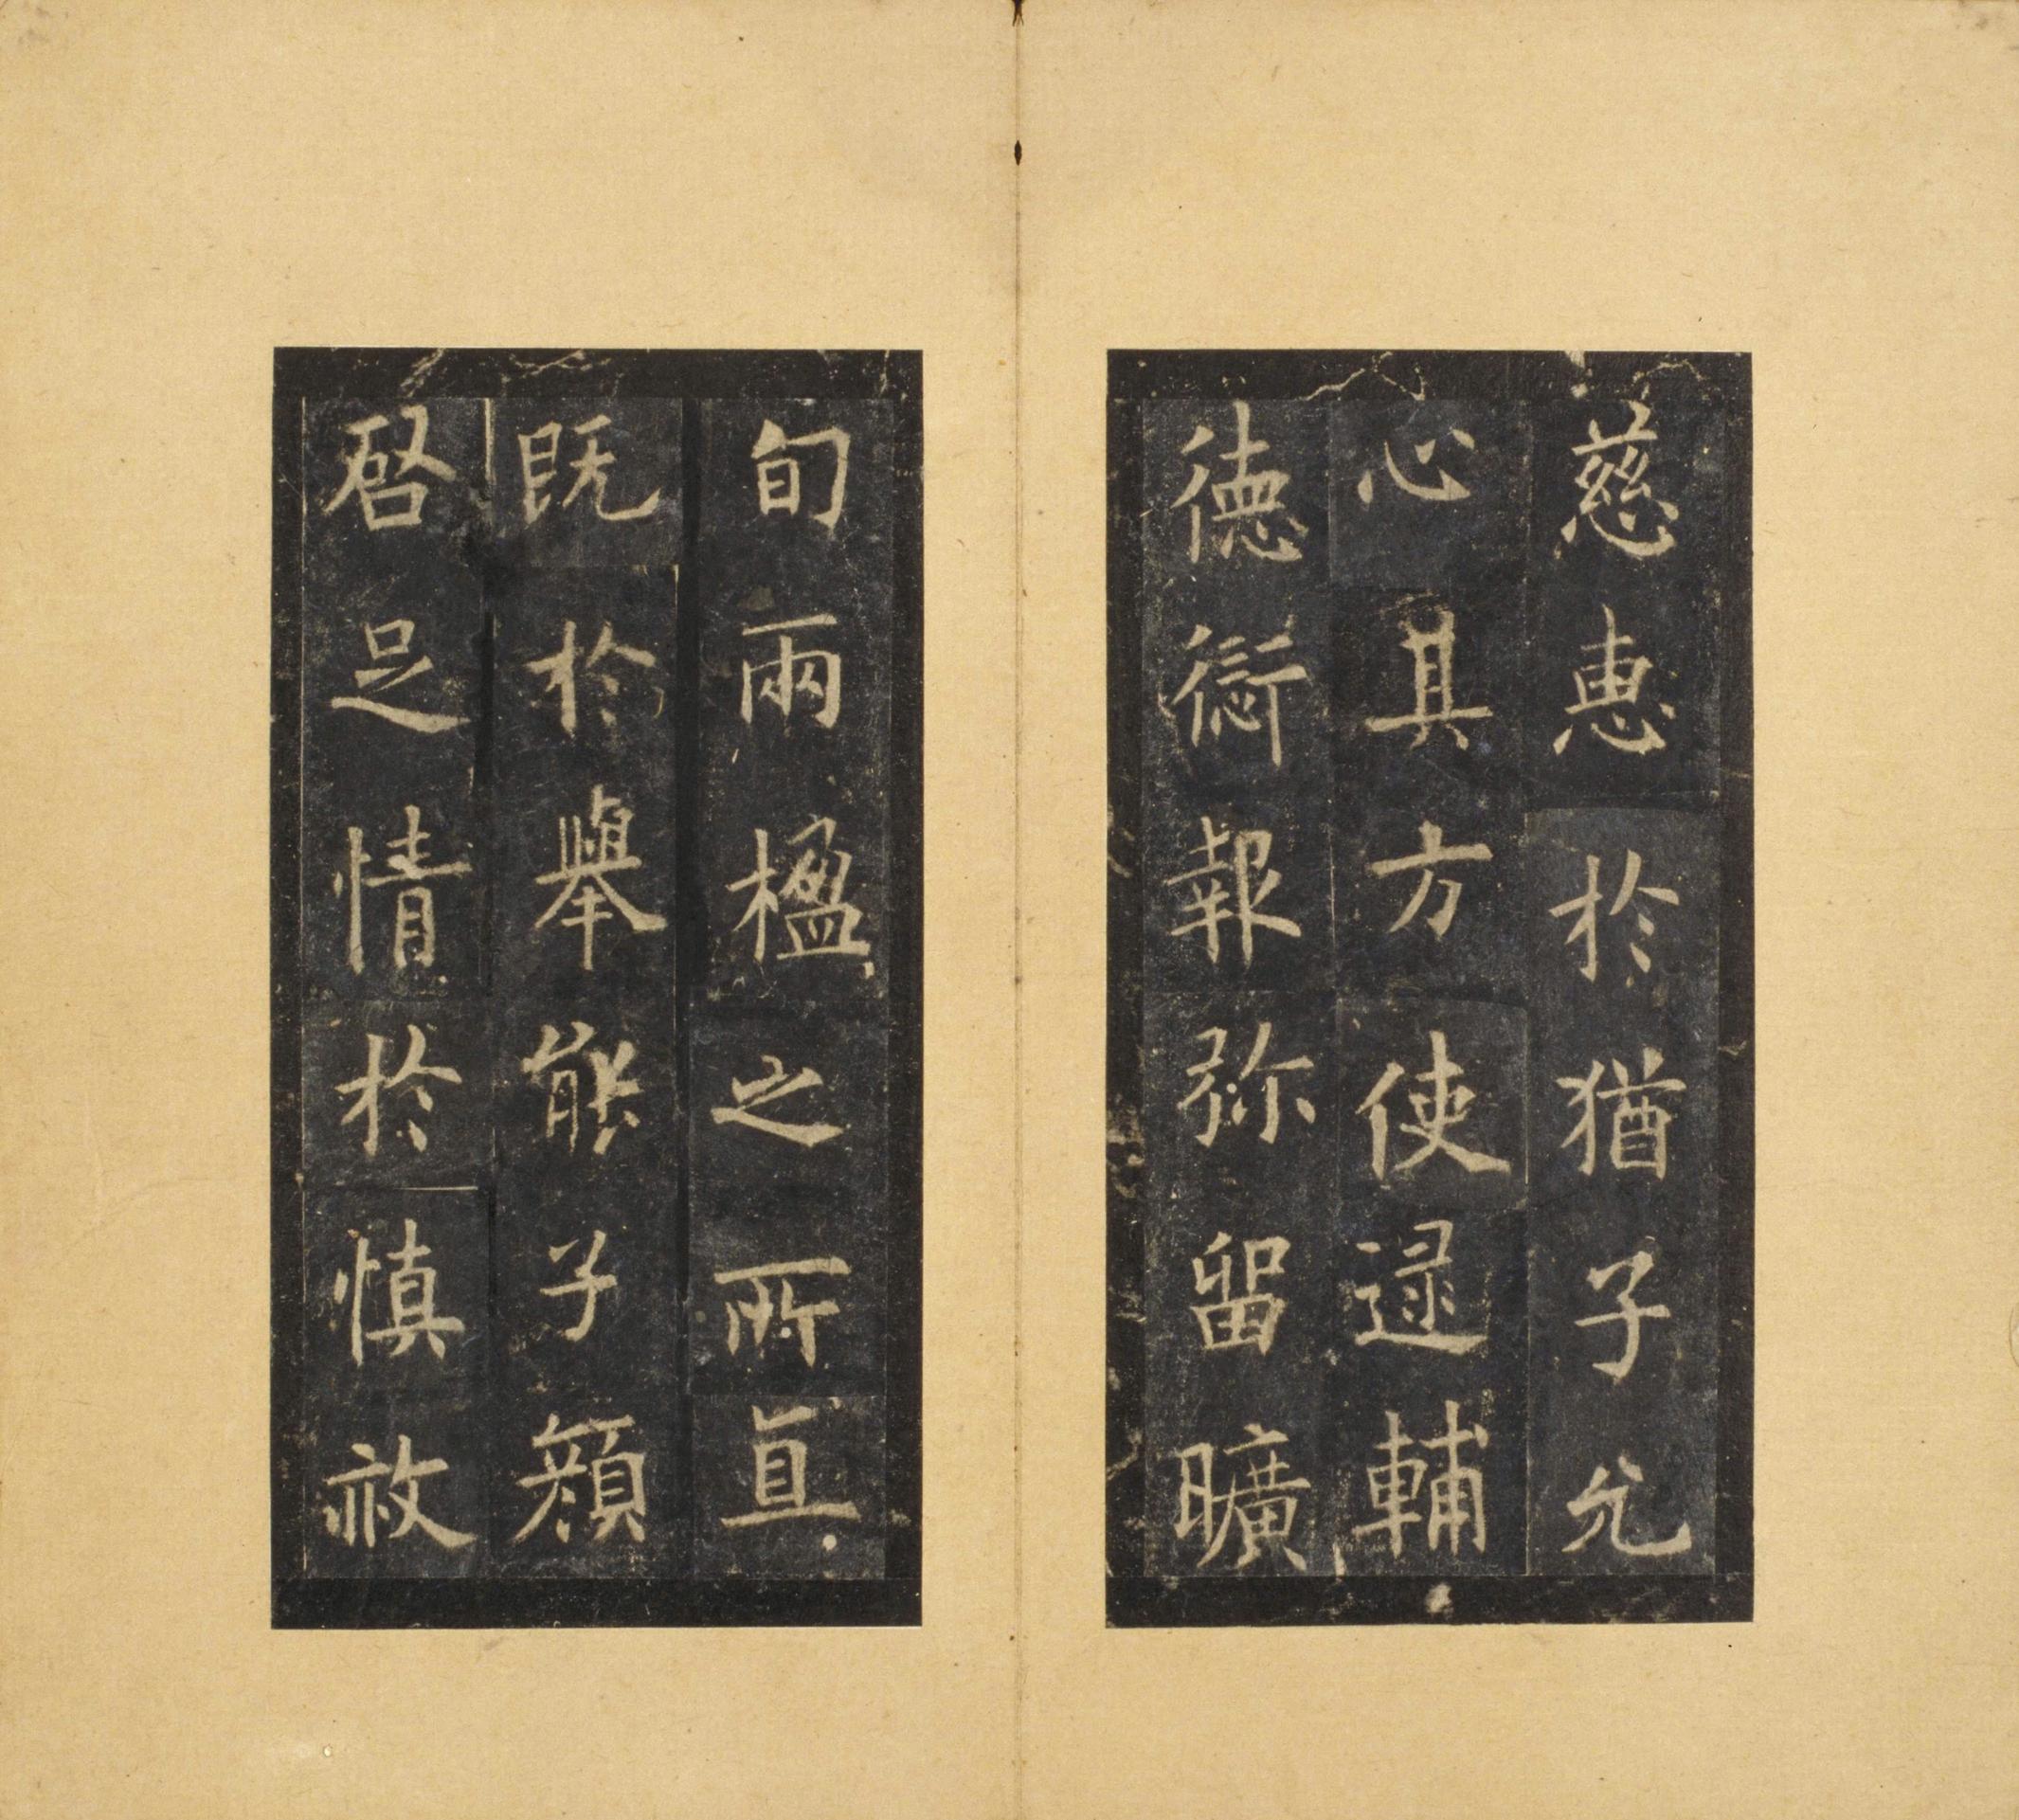 慈惠於猶子允
心其方使逯輔
德衍報弥留曠
旬兩楹之所真
既於舉能子顔
啓足情於慎赦